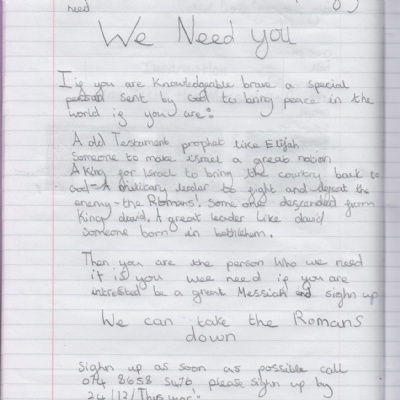 need
We Need you
I ig you are knowledgeable brave a special
person sent by God to bring peace in the
world ig you are:
A old Testament prophet like Elijah
Someone to make isreal a great nation
A King for Israel to bring the country back to
God - A military leader to fight and defeat the
enemy - the Romans! some one descended from
King david, A great leader like david
Someone born in bethlehem.
Then you are the person who we need
if is you wee need ig you are
intrested be a great Messiah and sighn up
We can take the Romans
down
Sighn up as soon as possible call
074 8658 5476 please sighn up by
24/12/This year!